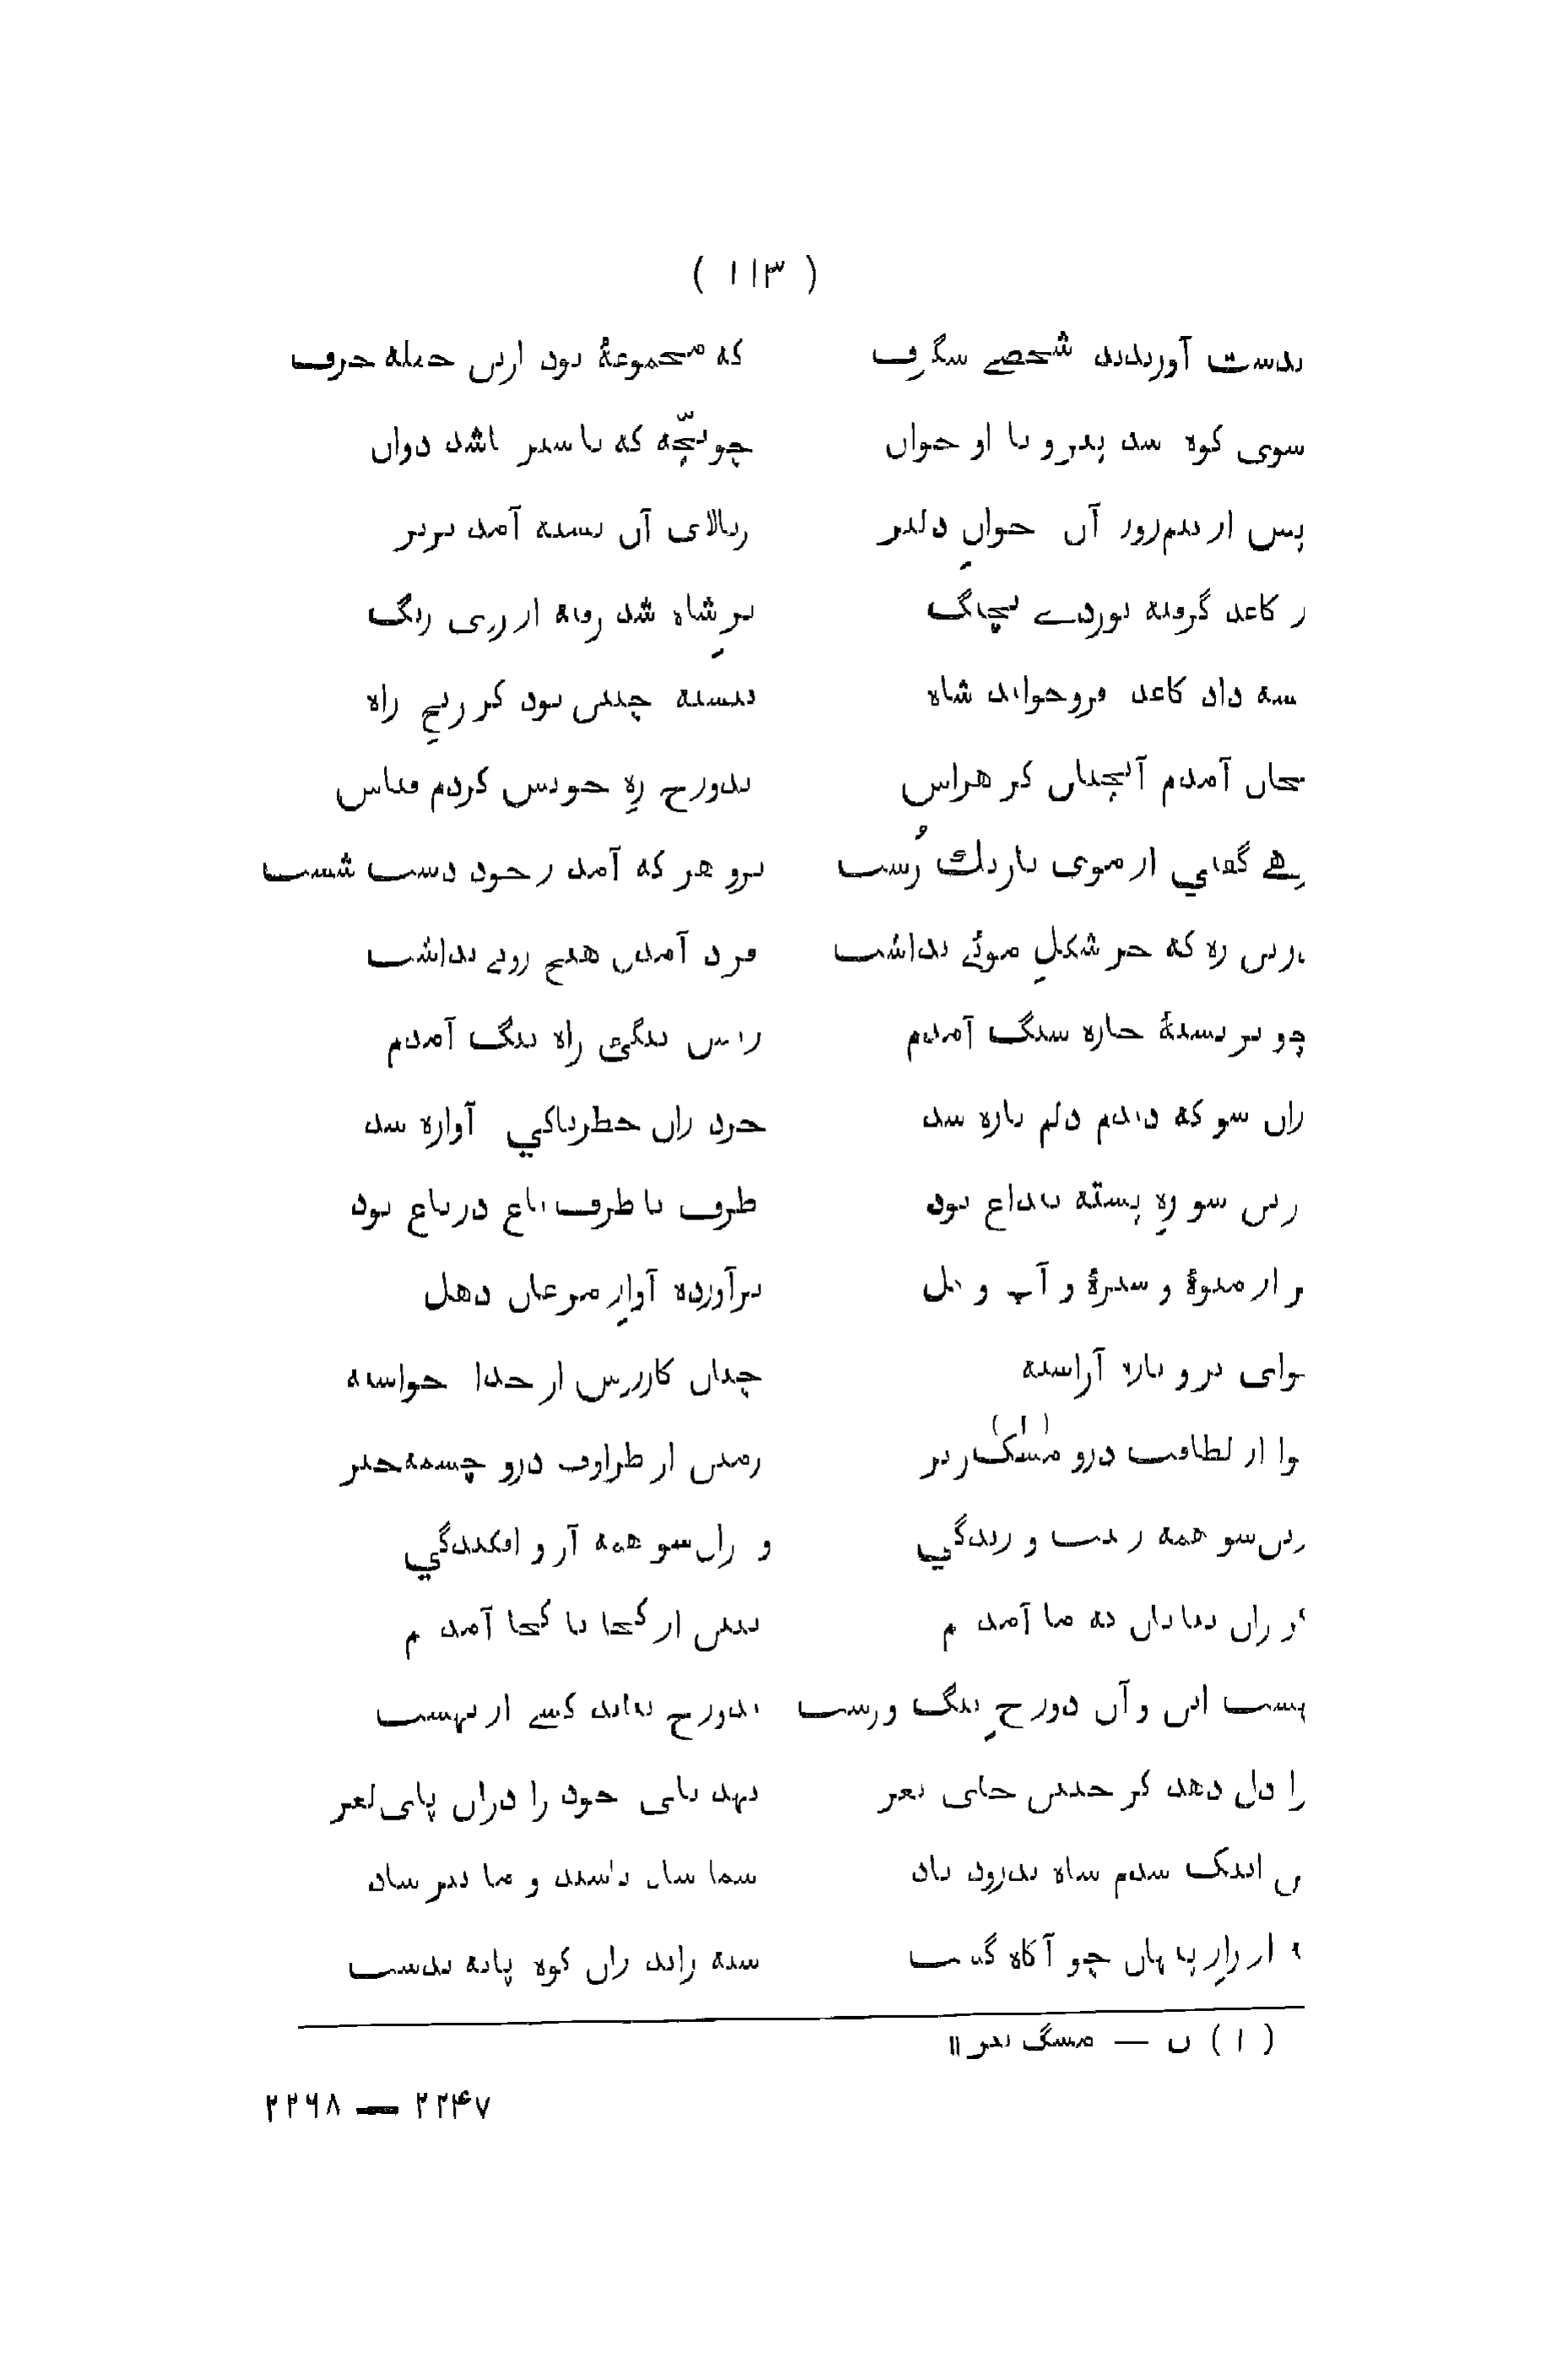 ( ۱۱۳ )
بدست آوریدند شخصے شگرف که مجموعهٔ بود ازین جمله حرف
سوی کوه شد پیر و با او جوان چو بچّه که با شیر باشد دوان
پس از نیم‌روز آن جوانِ دلیر ز بالای آن پشته آمد بزیر
ز کاغذ گرفته نوردے بچنگ برِ شاه شد رفته از روی رنگ
بشه داد کاغذ فروخواند شاه نبشته چنین بود کز رنجِ راه
بجان آمدم آنچنان کز هراس بدوزخ رهِ خویش کردم قیاس
رهے گفتي از موی باریك رُست برو هر که آمد ز خود دست شست
درین ره که جز شکلِ موئے نداشت فرود آمدن هیچ روئے نداشت
چو بر پشتهٔ خاره سنگ آمدم ز بس تنگئ راه تنگ آمدم
ازان سو که دیدم دلم پاره شد خرد زان خطرناکي آواره شد
وزین سو رهِ پشته بیداغ بود طرف تا طرف باغ در باغ بود
پر از میوهٔ و سبزهٔ و آب و گل برآورده آوازِ مرغان دهل
هوای در و تازه آراسته چنان کارزوش از خدا خواسته
هوا از لطافت درو مشک‌ریز(۱) زمین از طراوت درو چشمه‌خیز
ازین‌سو همه زینت و زندگي و زان‌سو همه آز و افکندگي
کز زان بیابان به ما آمدم ببین از کجا تا کجا آمدم
بهشت این و آن دوزخِ تنگ و رست بدوزخ نیاید کسے از بهشت
را دل دهد کز چنین جای نغز نهد پای خود را دران پای لغز
من اینک شدم شاه بدرود باد شما شاد باشید و ما نیز شاد
شه از رازِ پنهان چو آگاه گشت سپه راند زان کوه پایه بدشت
( ۱ ) ن — مشک بیز ॥
۲۲۴۷ — ۲۲۶۸